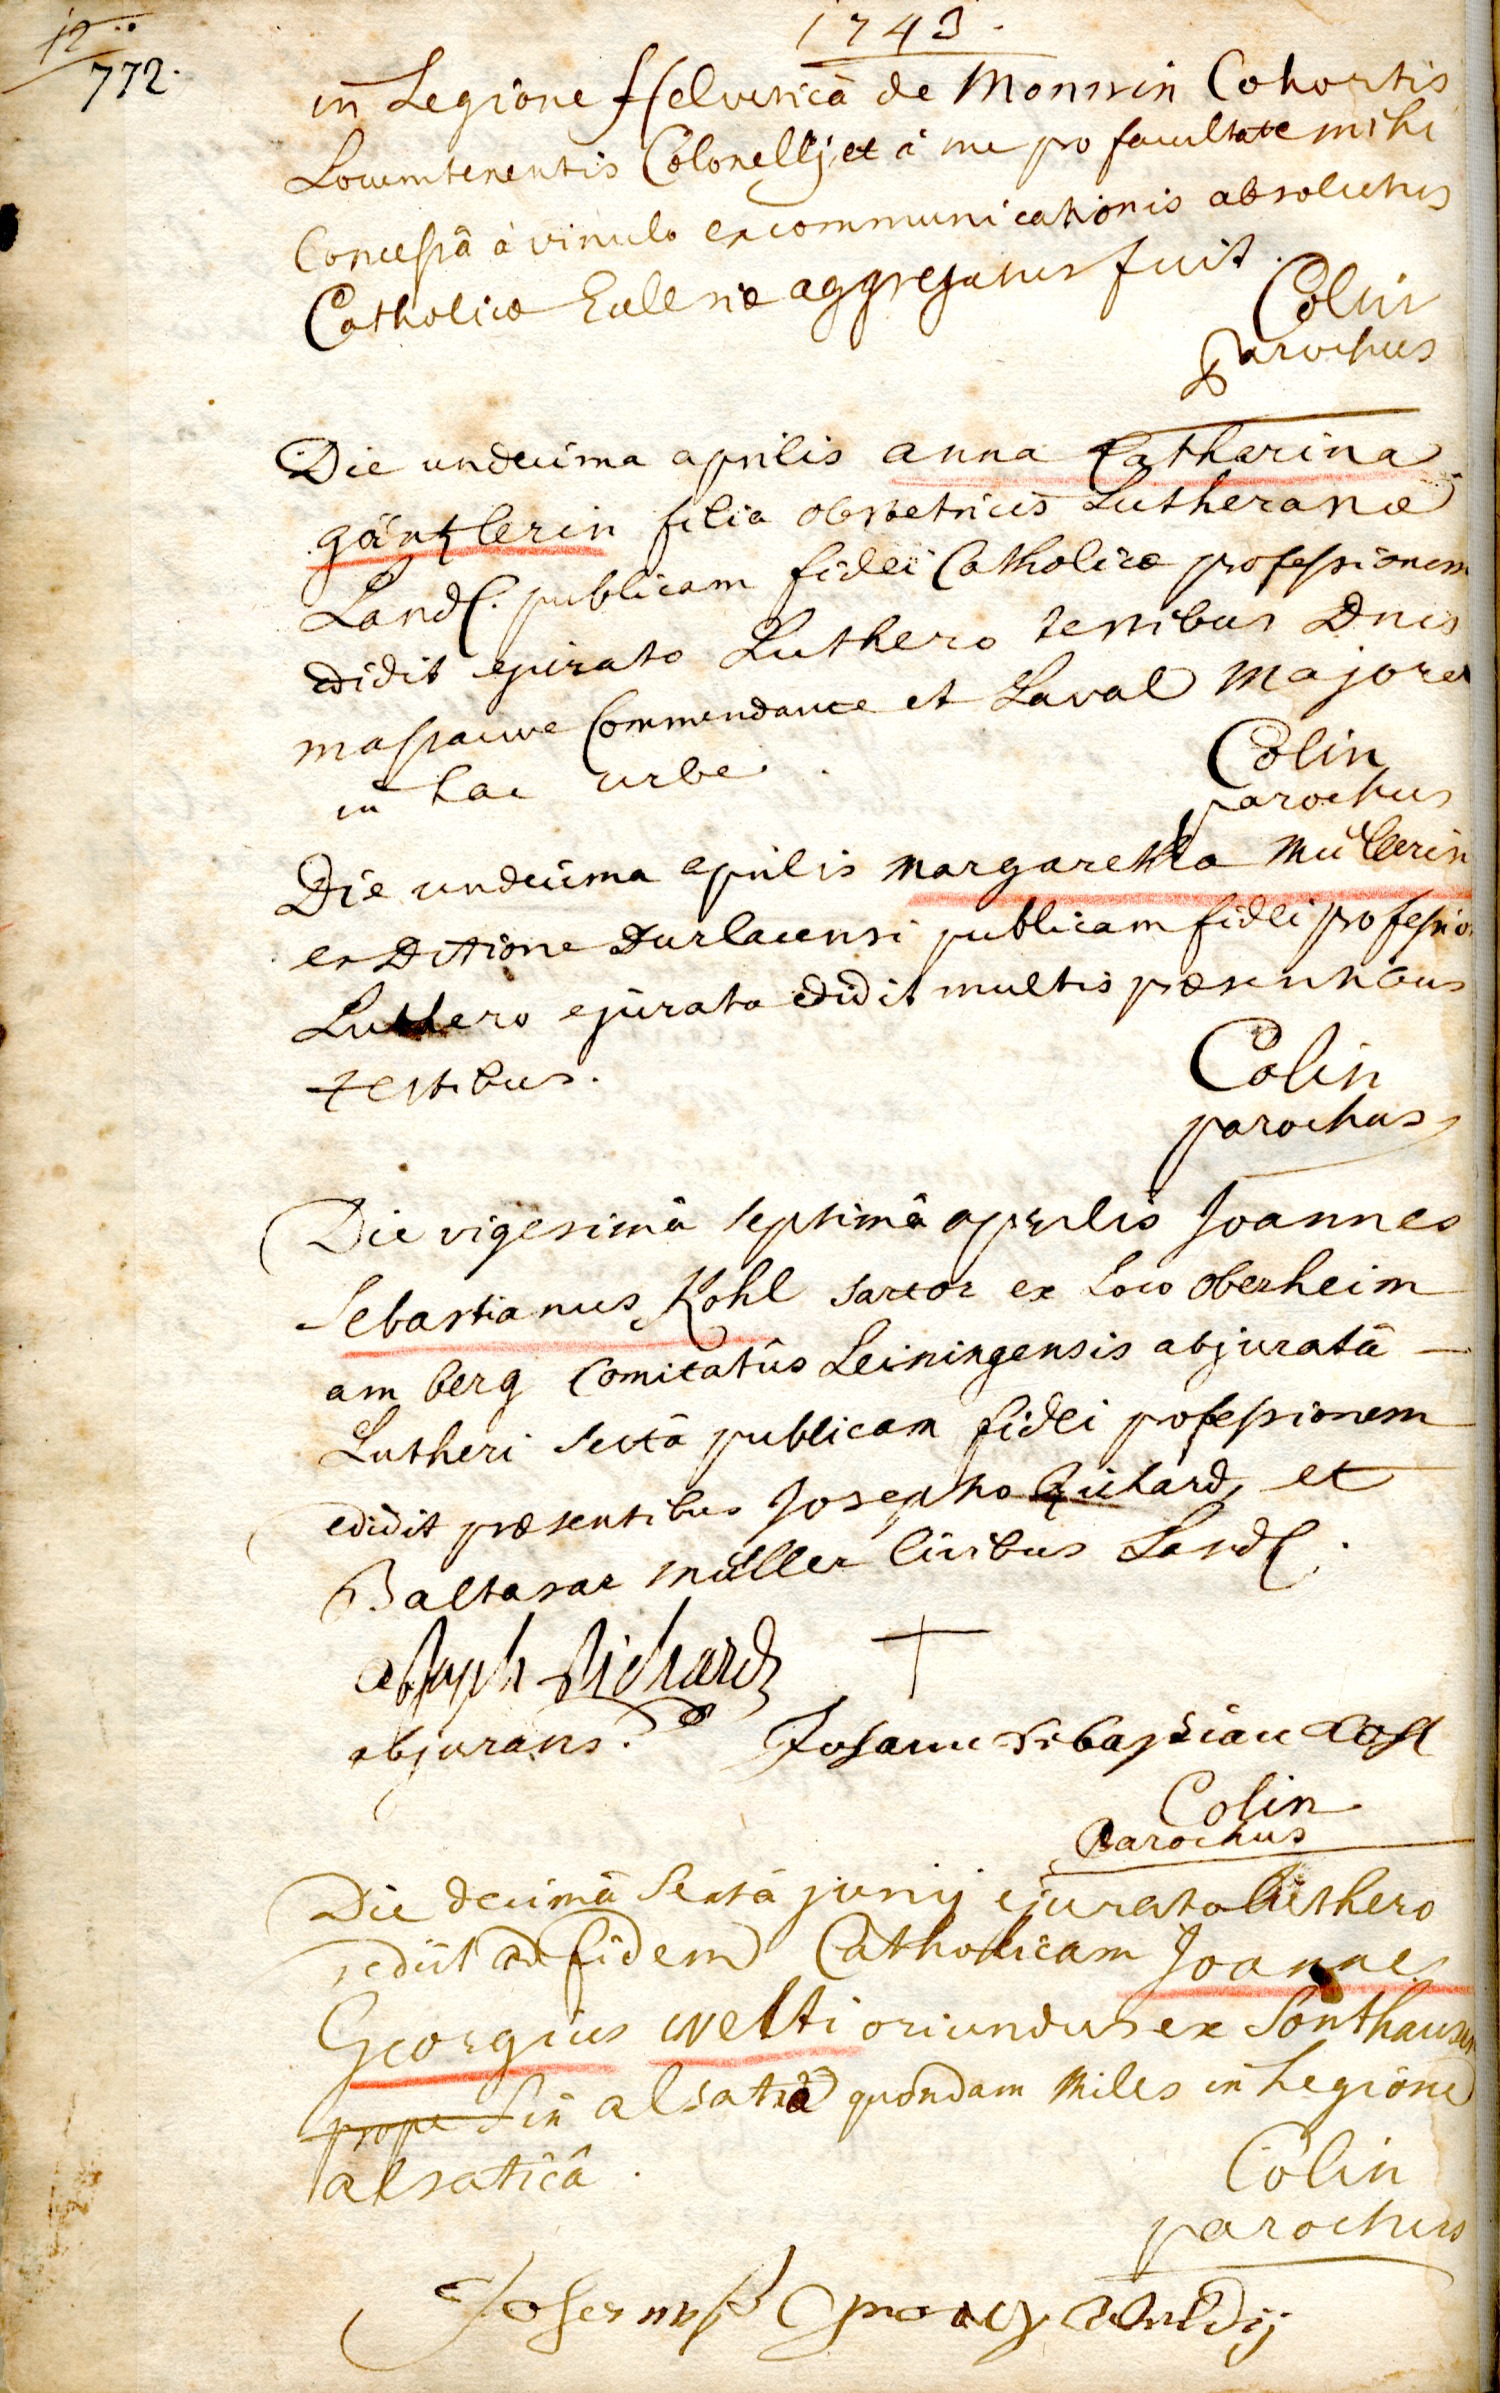 772.
1743.
in Legione Helveticâ de Monnin Cohortis
Locumtenentis Colonellij et à me pro facultate mihi
Concessâ à vinulo excommunicationis absolutus
Catholicæ Eclesiæ aggregatus fuit.
Colin
parochus
Die undecima aprilis anna Catharina
gäntzlerin filia obstetricis Lutheranæ
Land. publicam fidei Catholicæ professionem
edidit ejurato Luthero testibus Dnis
massauve Commendante et Laval Majore
in hac urbe.
Colin
parochus
Die undecima aprilis Margaretha Müllerin
ex Ditione Durlacensi publicam fidei professio
Luthero ejurato edidit multis præsentibus
testibus.
Colin
parochus
Die vigesimâ septimâ aprilis Joannes
Sebastianus Kohl sartor ex Loco oberheim
am berg Comitatûs Leiningensis abjuratâ
Lutheri sectâ publicam fidei professionem
edidit præsentibus Josepho Richard, et
Baltasar müller Civibus Land.
Joseph Richard
+
abjurans. Johann Sebastian Kohl
Colin
Parochus
Die decimâ sextâ junij ejurato Luthero
rediit ad fidem Catholicam Joannes
Georgius welti oriundus ex Sonthausen
prope in alsatiâ quondam Miles in Legione
alsaticâ.
Colin
parochus